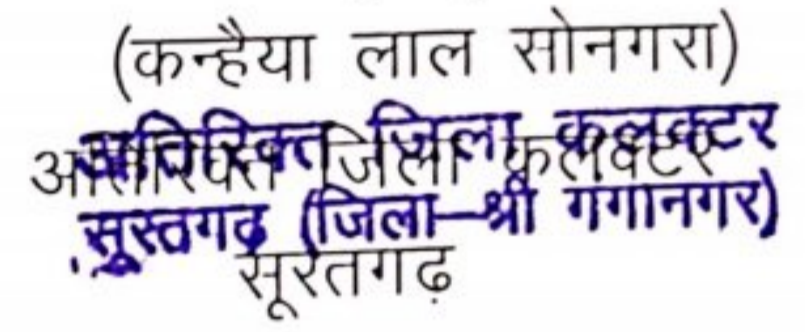 (कन्हैया लाल सोनगरा)
अतिरिक्त जिला कलक्टर
अतिरिक्त जिला कलक्टर
सूरतगढ़ (जिला–श्री गंगानगर)
सूरतगढ़